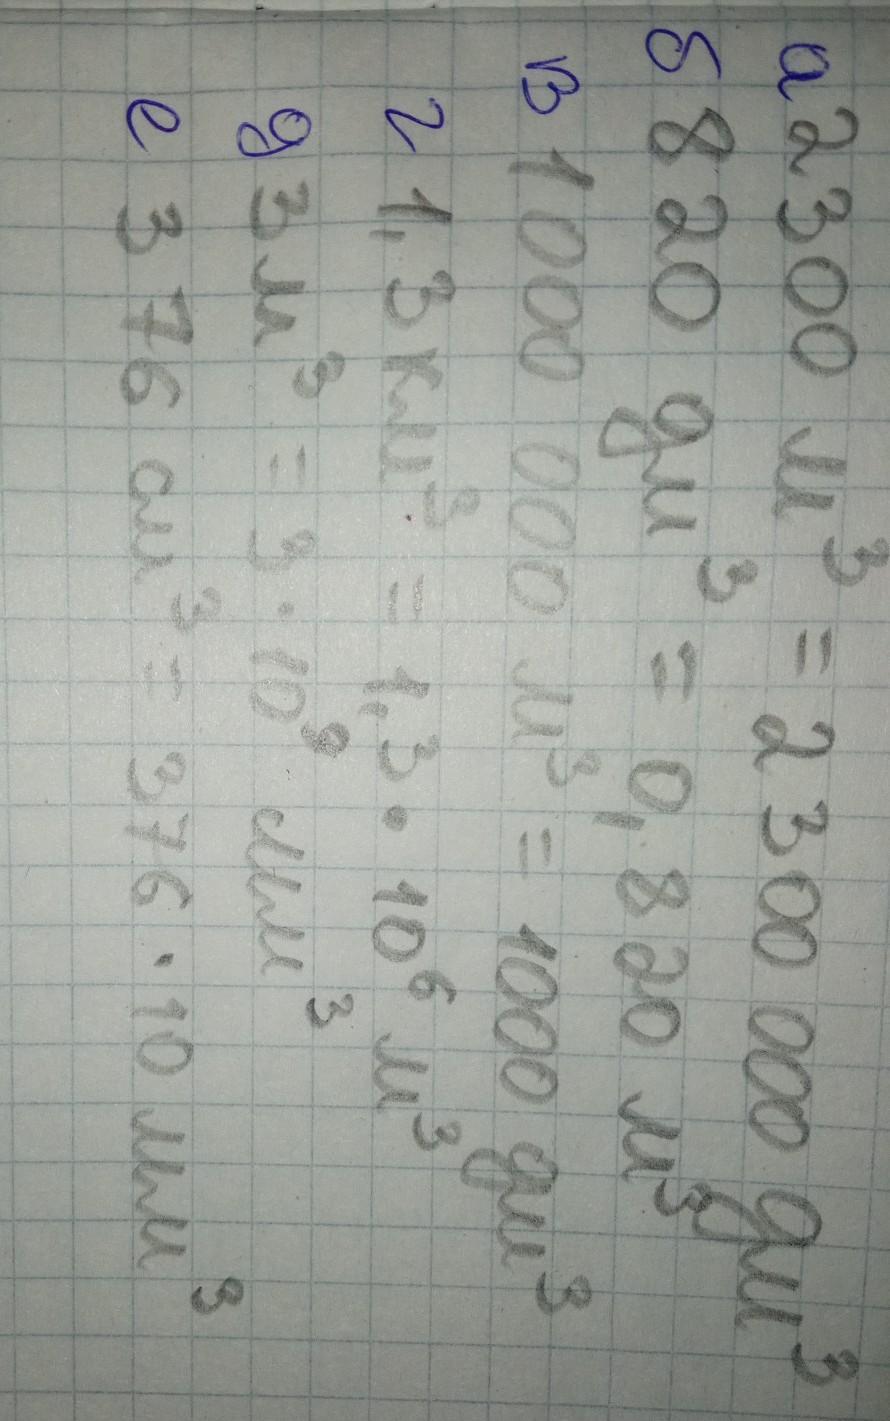 а 2300 м³ = 2300 000 дм³
б 820 дм³ = 0,820 м³
в 1000 000 м³ = 1000 дм³
г 1,3 км³ = 1,3 · 10⁶ м³
д 3 м³ = 3 · 10⁹ мм³
е 376 см³ = 376 · 10 мм³